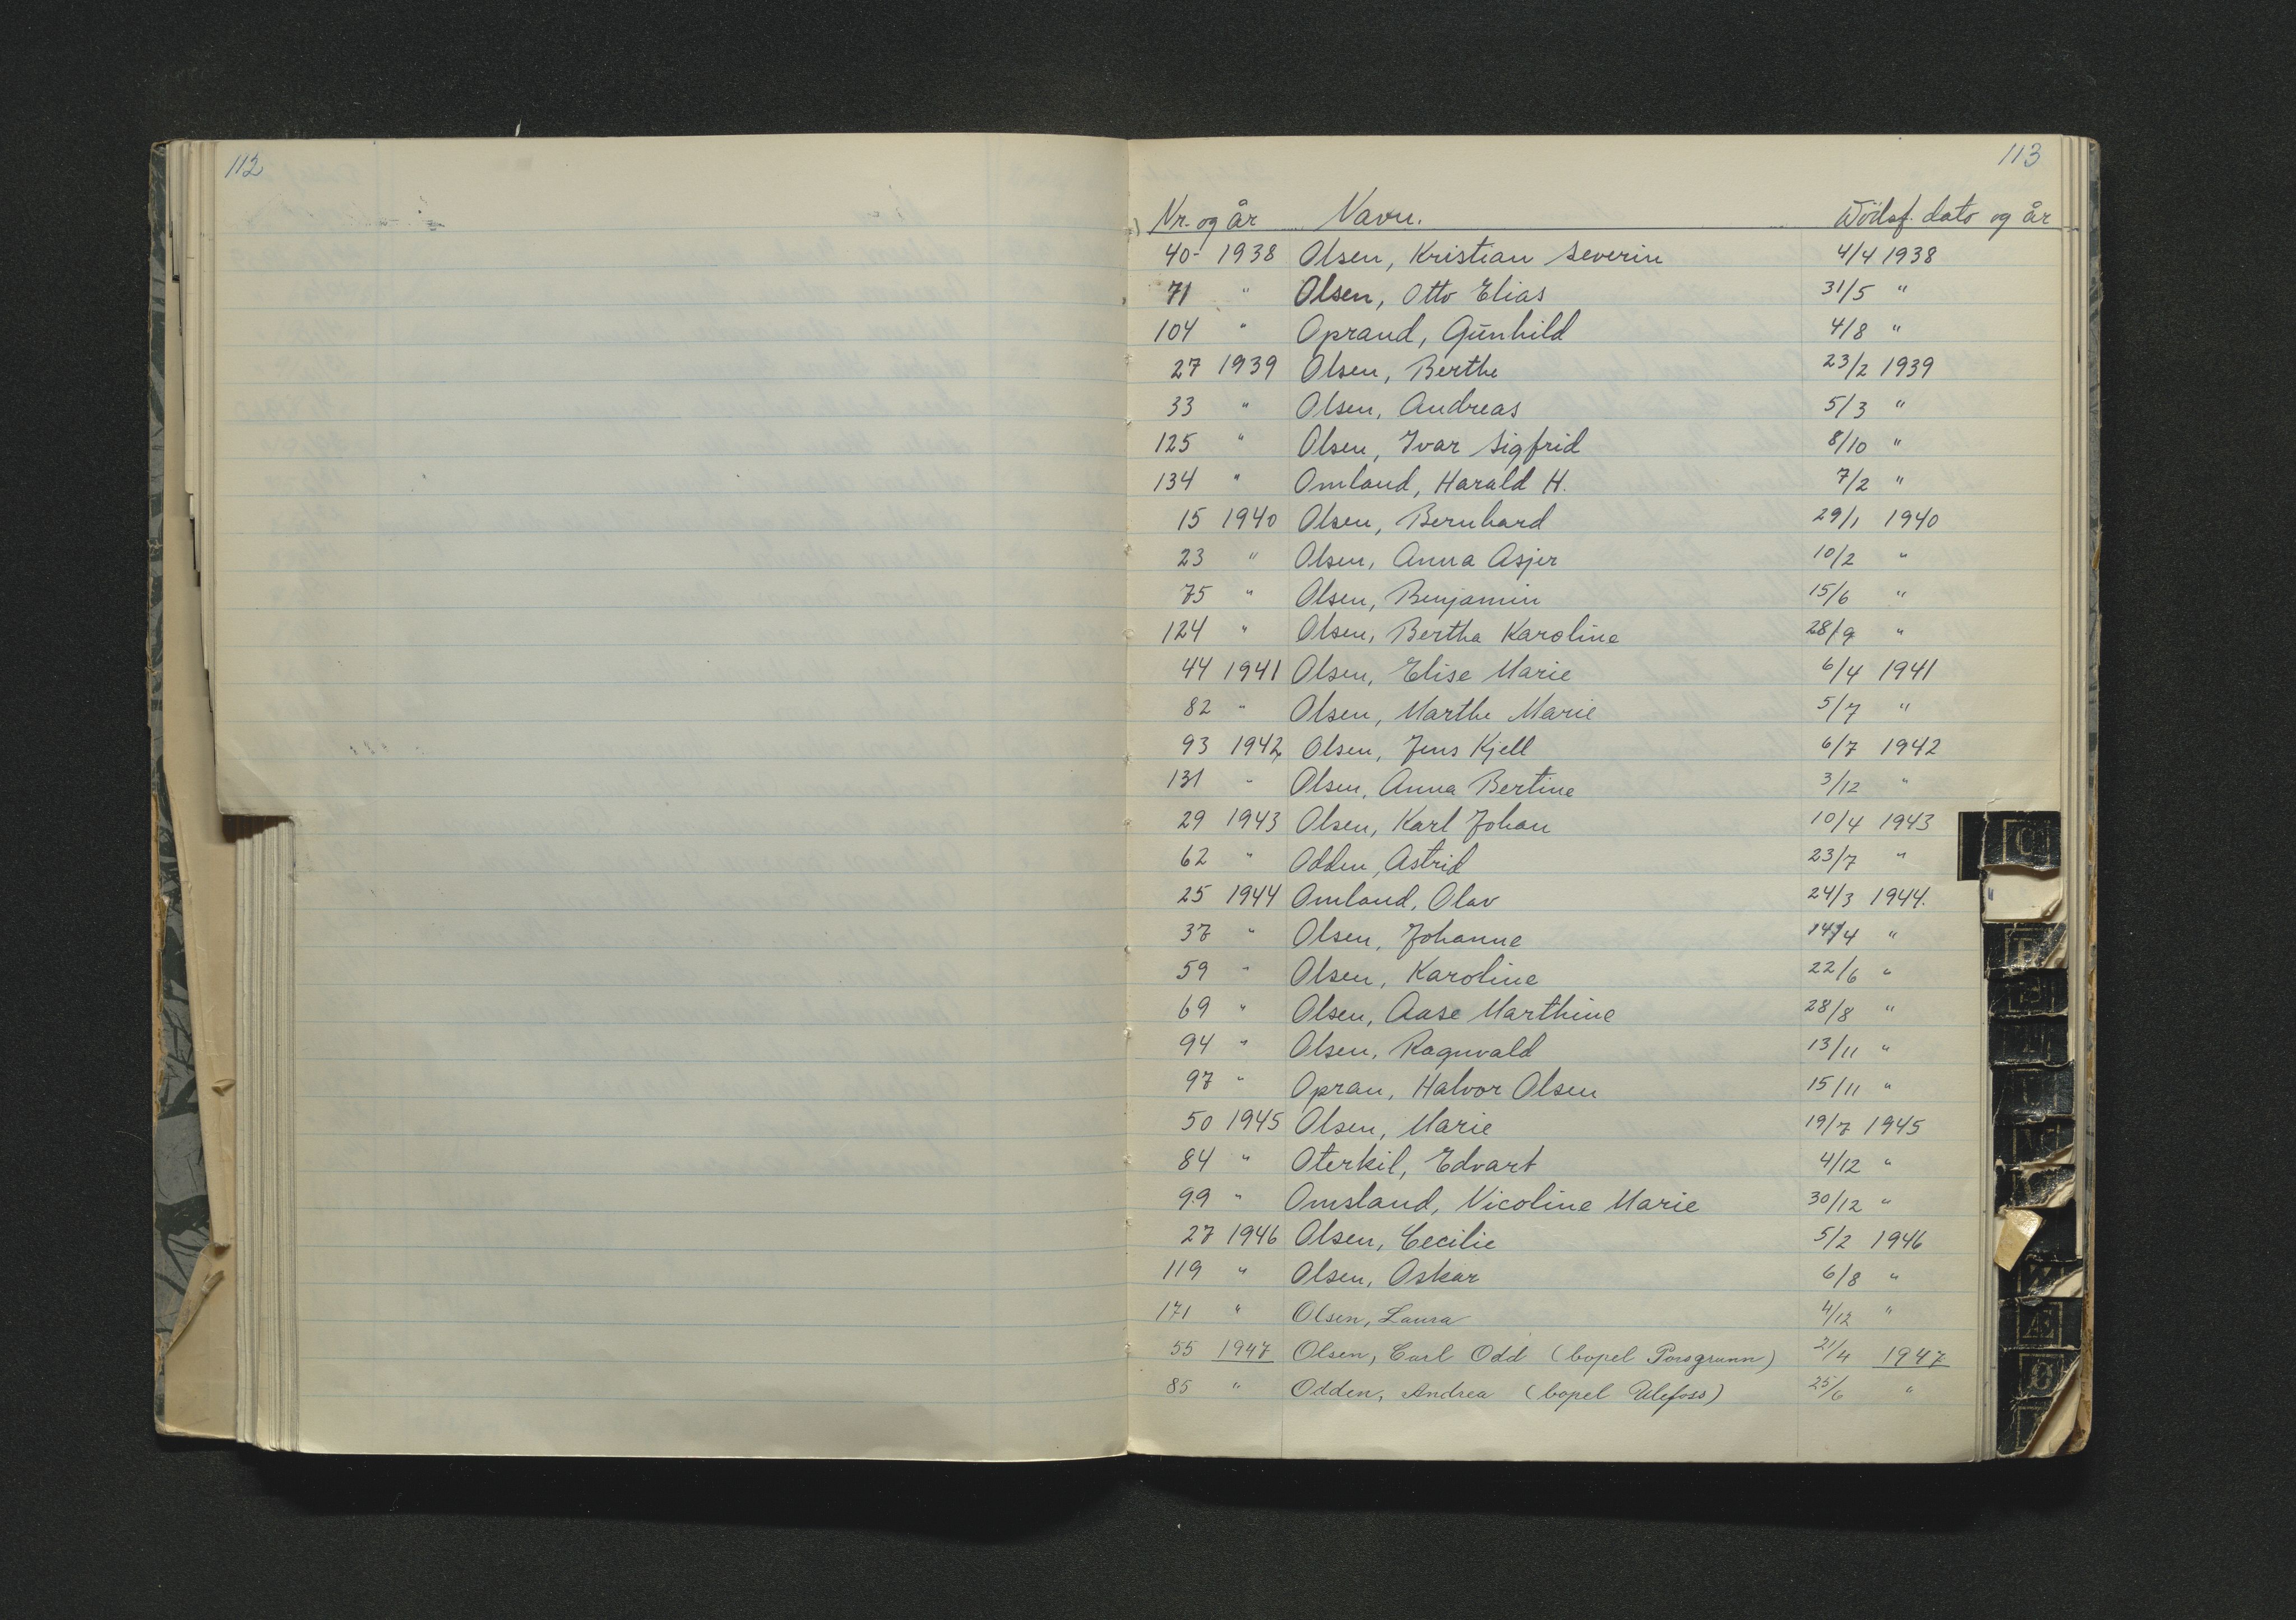 112
113
Nr. og år Navn. Dödsf. dato og år
40- 1938 Olsen, Kristian Severin 4/4 1938
71 " Olsen, Otto Elias 31/5 "
104 " Oprand, Gŭnhild 4/8 "
27 1939 Olsen, Berthe 23/2 1939
33 " Olsen, Andreas 5/3 "
125 " Olsen, Ivar Sigfrid 8/10 "
134 " Omland, Harald H. 7/2 "
15 1940 Olsen, Bernhard 29/1 1940
23 " Olsen, Anna Asjer 10/2 "
75 " Olsen, Benjamin 15/6 "
124 " Olsen, Bertha Karoline 28/9 "
44 1941 Olsen, Elise Marie 6/4 1941
82 " Olsen, Marthe Marie 5/7 "
93 1942 Olsen, Jens Kjell 6/7 1942
131 " Olsen, Anna Bertine 3/12 "
29 1943 Olsen, Karl Johan 10/4 1943
62 " Odden, Astrid 23/7 "
25 1944 Omland, Olav 24/3 1944.
37 " Olsen, Johanne 14/4 "
59 " Olsen, Karoline 22/6 "
69 " Olsen, Aase Marthine 28/8 "
94 " Olsen, Ragnvald 13/11 "
97 " Opran, Halvor Olsen 15/11 "
50 1945 Olsen, Marie 19/7 1945
84 " Oterkil, Edvart 4/12 "
99 " Omsland, Nicoline Marie 30/12 "
27 1946 Olsen, Cecilie 5/2 1946
119 " Olsen, Oskar 6/8 "
171 " Olsen, Laura 4/12 "
55 1947 Olsen, Carl Odd (bopel Porsgrunn) 21/4 1947
85 " Odden, Andrea (bopel Ulefoss) 25/6 "
O
Æ
Ø